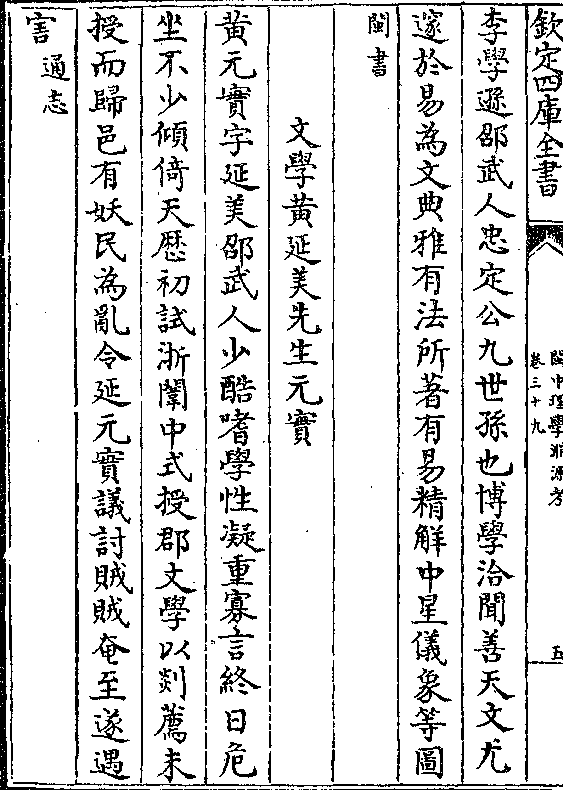 欽定四庫全書
閩中理學淵源考
卷三十九
五
李學遜邵武人忠定公九世孫也博學洽聞善天文尤
邃於易為文典雅有法所著有易精解中星儀象等圖
閩書
文學黃延美先生元實
黃元實字延美邵武人少酷嗜學性凝重寡言終日危
坐不少傾倚天歴初試浙闈中式授郡文學以剡薦未
授而歸邑有妖民為亂令延元實議討賊賊奄至遂遇
害通志